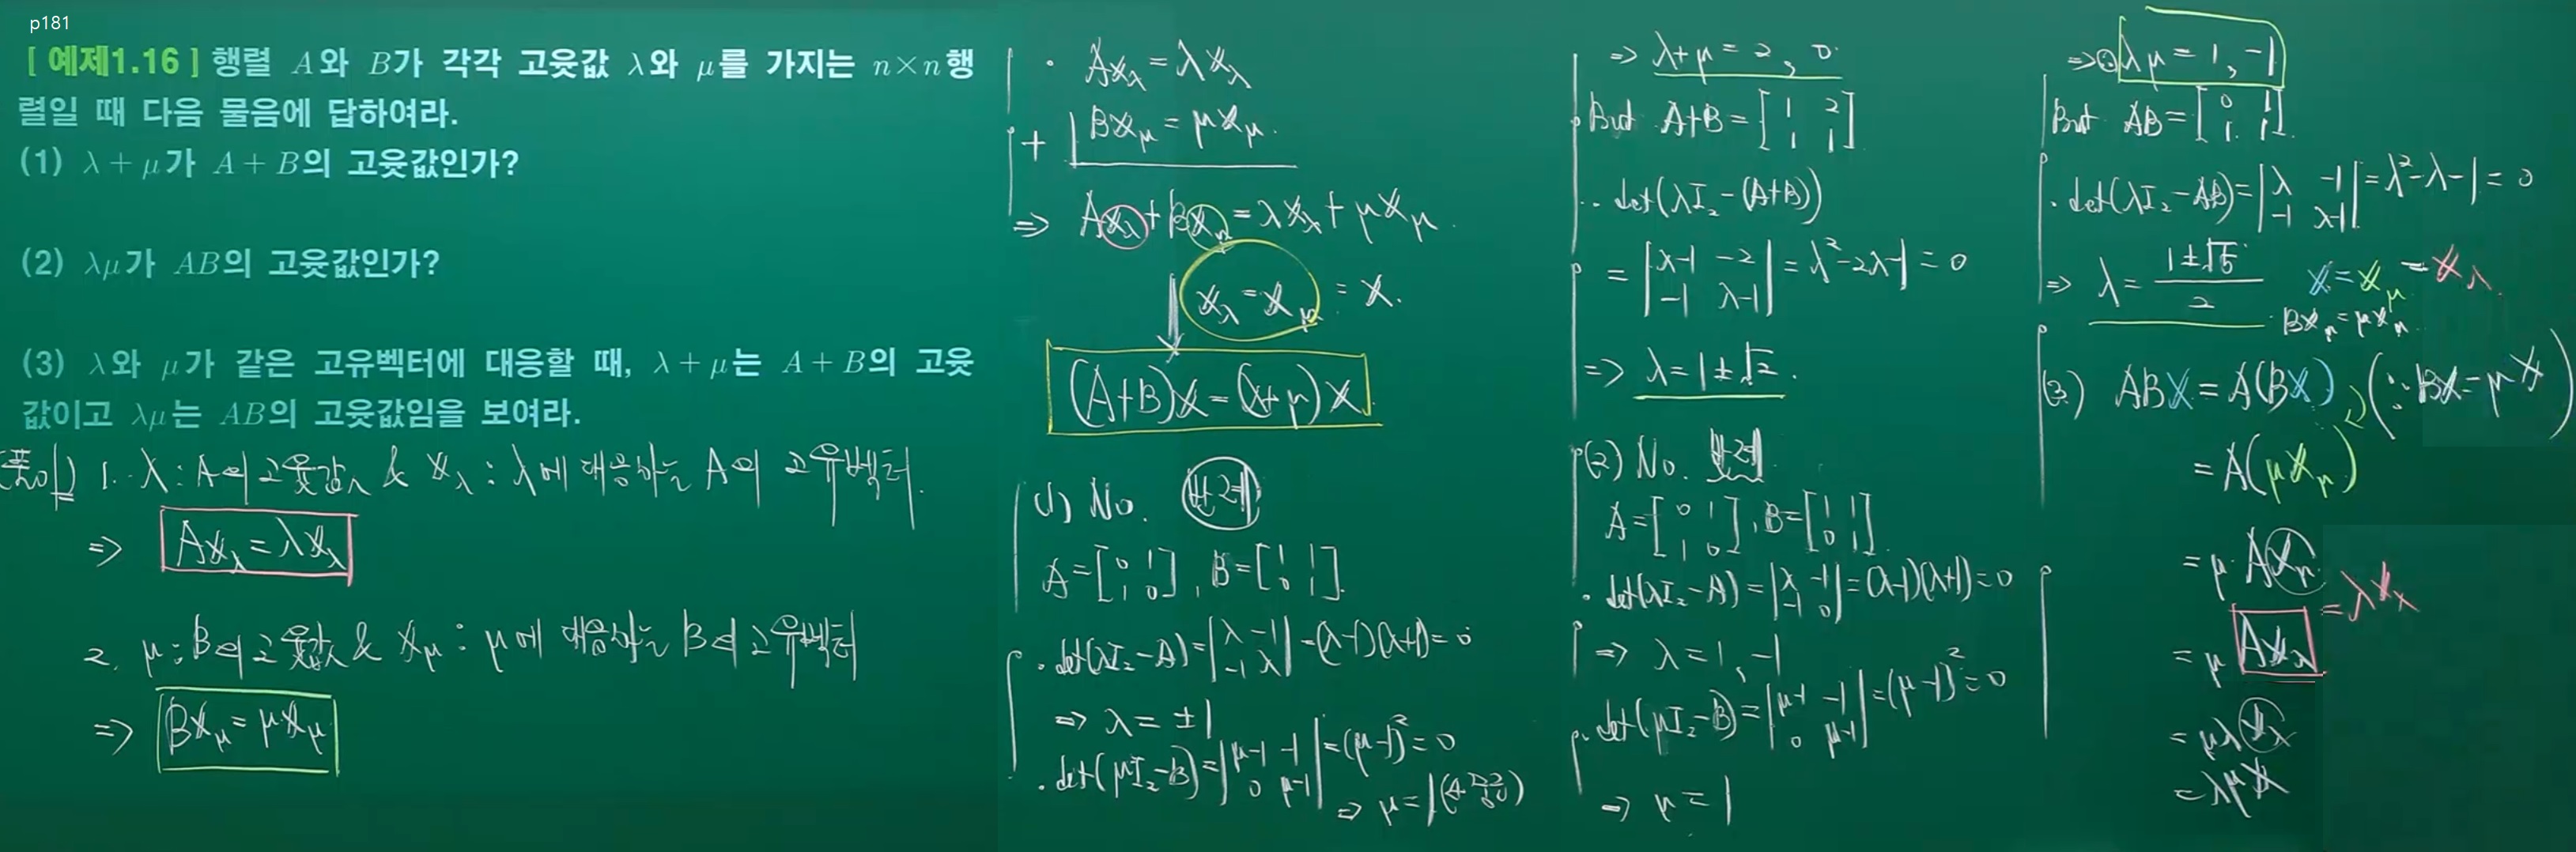 p181
[ 예제1.16 ] 행렬 A와 B가 각각 고윳값 λ와 μ를 가지는 n×n행
렬일 때 다음 물음에 답하여라.
(1) λ+μ가 A+B의 고윳값인가?
(2) λμ가 AB의 고윳값인가?
(3) λ와 μ가 같은 고유벡터에 대응할 때, λ+μ는 A+B의 고윳
값이고 λμ는 AB의 고윳값임을 보여라.
(풀이) 1. λ : A의 고윳값 & x_λ : λ에 대응하는 A의 고유벡터.
⇒ Ax_λ = λx_λ
2. μ : B의 고윳값 & x_μ : μ에 대응하는 B의 고유벡터
⇒ Bx_μ = μx_μ
· Ax_λ = λx_λ
+ | Bx_μ = μx_μ.
⇒ Ax_λ + Bx_μ = λx_λ + μx_μ.
x_λ = x_μ = x.
(A+B)x = (λ+μ)x
(1) No.
A = [0 1; 1 0], B = [1 1; 0 1].
· det(λI₂-A) = |λ -1; -1 λ| = (λ-1)(λ+1) = 0
⇒ λ = ±1
· det(μI₂-B) = |μ-1 -1; 0 μ-1| = (μ-1)² = 0
⇒ μ = 1 (중근)
⇒ λ+μ = 2, 0.
But A+B = [1 2; 1 1]
· det(λI₂-(A+B))
= |λ-1 -2; -1 λ-1| = λ²-2λ-1 = 0
⇒ λ = 1±√2.
(2) No.
A = [0 1; 1 0], B = [1 1; 0 1].
· det(λI₂-A) = |λ -1; -1 0| = (λ-1)(λ+1) = 0
⇒ λ = 1, -1
· det(μI₂-B) = |μ-1 -1; 0 μ-1| = (μ-1)² = 0
⇒ μ = 1
⇒ λμ = 1, -1
But AB = [0 1; 1 1].
· det(λI₂-AB) = |λ -1; -1 λ-1| = λ²-λ-1 = 0
⇒ λ = (1±√5)/2
x = x_μ = x_λ
Bx_μ = μx_μ
(3) ABx = A(Bx) (∵ Bx = μx)
= A(μx_μ)
= μ·Ax_μ
= μ Ax_λ = λx_λ
= μλx_λ
= λμx